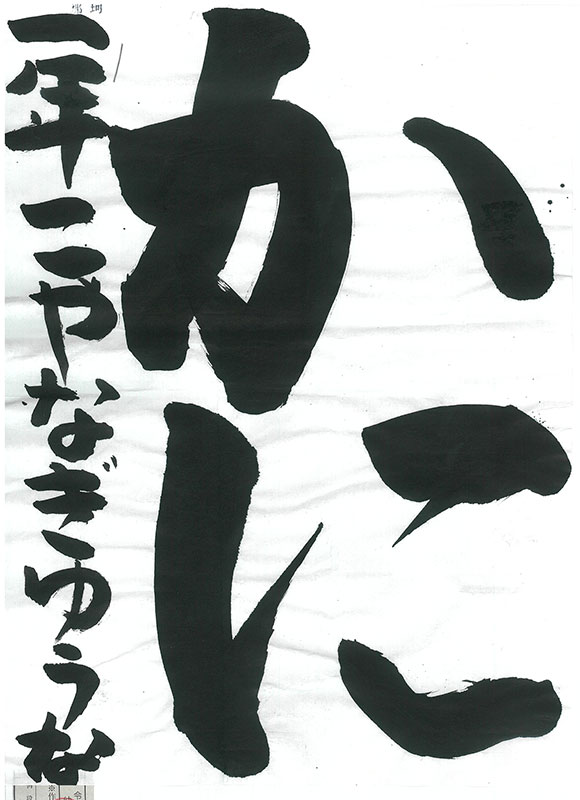 かに
一年 こやなぎゆうな